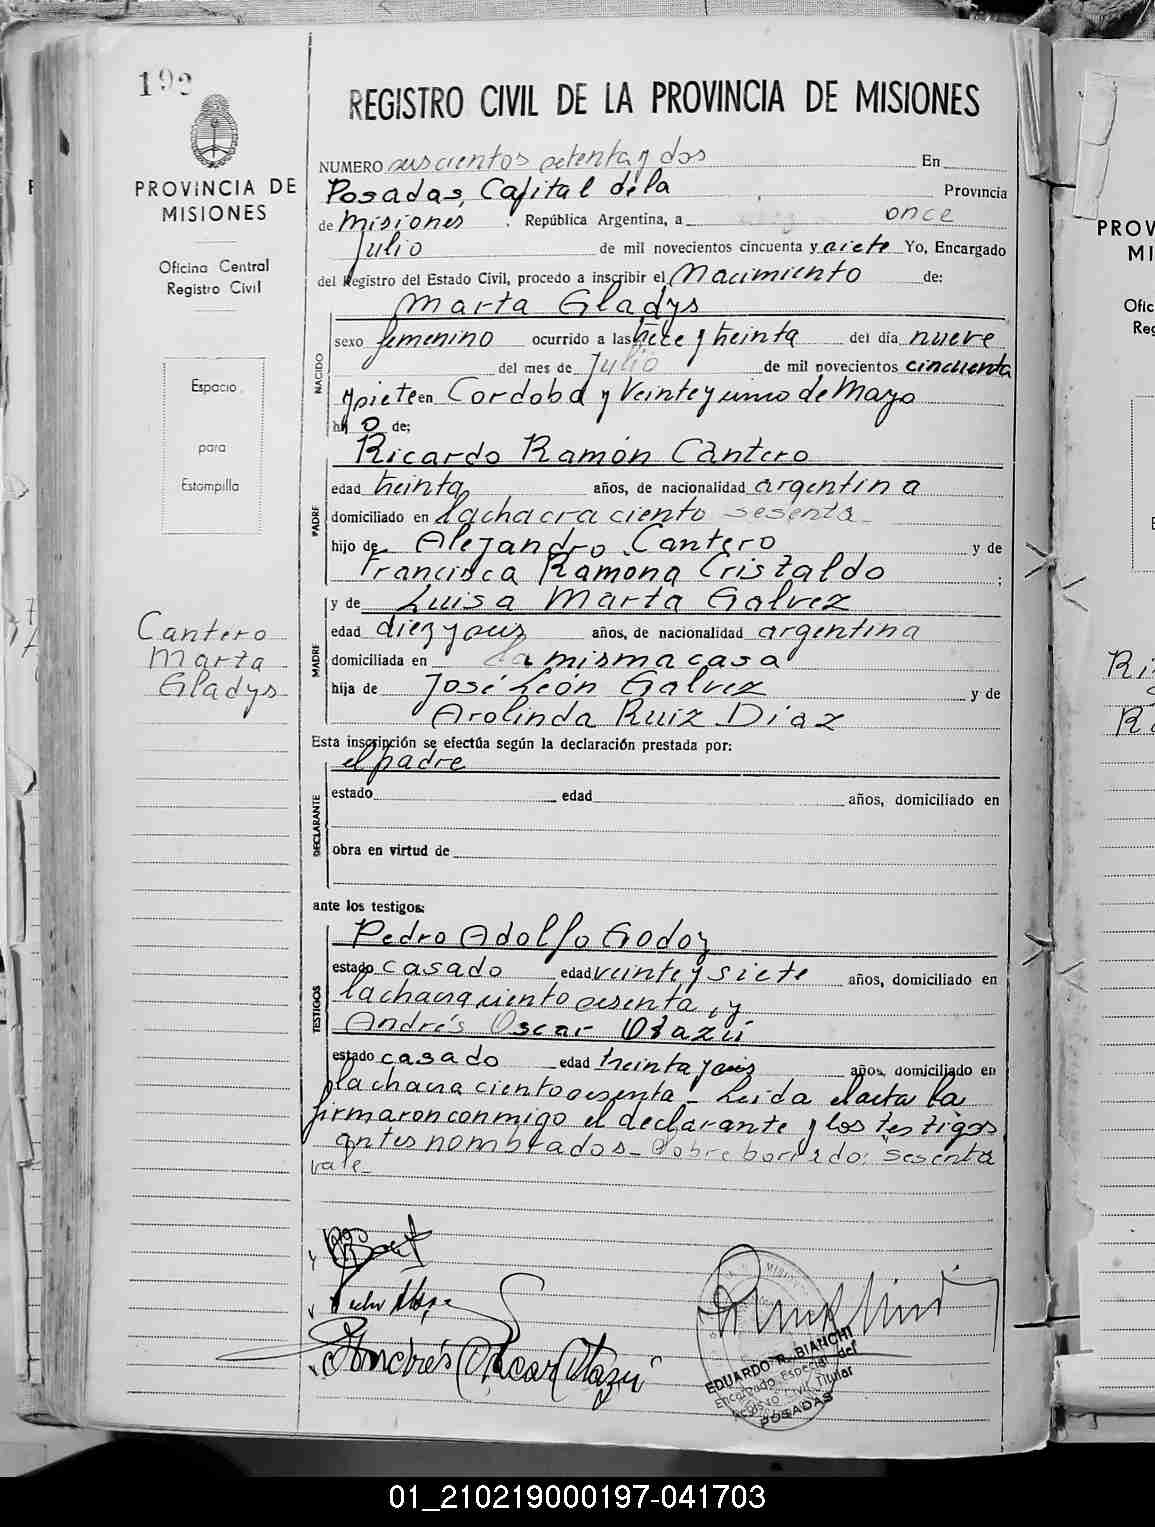 192
REGISTRO CIVIL DE LA PROVINCIA DE MISIONES
PROVINCIA DE
MISIONES
Oficina Central
Registro Civil
Espacio
para
Estampilla
Cantero
Marta
Gladys
NUMERO seiscientos setenta y dos En
Posadas, Capital de la Provincia
de Misiones República Argentina, a once
Julio de mil novecientos cincuenta y siete Yo, Encargado
del Registro del Estado Civil, procedo a inscribir el Nacimiento de:
Marta Gladys
NACIDO
sexo femenino ocurrido a las trece y treinta del día nueve
del mes de Julio de mil novecientos cincuenta
y siete en Cordoba y Veinte y uno de Mayo
de;
PADRE
Ricardo Ramón Cantero
edad treinta años, de nacionalidad argentina
domiciliado en la chacra ciento sesenta
hijo de Alejandro Cantero y de
Francisca Ramona Cristaldo ;
MADRE
y de Luisa Marta Galvez
edad diez y seis años, de nacionalidad argentina
domiciliada en la misma casa
hija de José León Galvez y de
Arolinda Ruiz Diaz
Esta inscripción se efectúa según la declaración prestada por:
el padre
DECLARANTE
estado edad años, domiciliado en
obra en virtud de
ante los testigos:
TESTIGOS
Pedro Adolfo Godoy
estado casado edad veinte y siete años, domiciliado en
la chacra ciento sesenta, y
Andrés Oscar Otazú
estado casado edad treinta y seis años, domiciliado en
la chacra ciento sesenta - Leida el acta la
firmaron conmigo el declarante y los testigos
antes nombrados - Sobre borrado: sesenta
vale -
Andrés Oscar Otazú
EDUARDO R. BIANCHI
Encargado Especial del
Registro Civil Titular
POSADAS
PROV
MI
Ofic
Reg
01_210219000197-041703